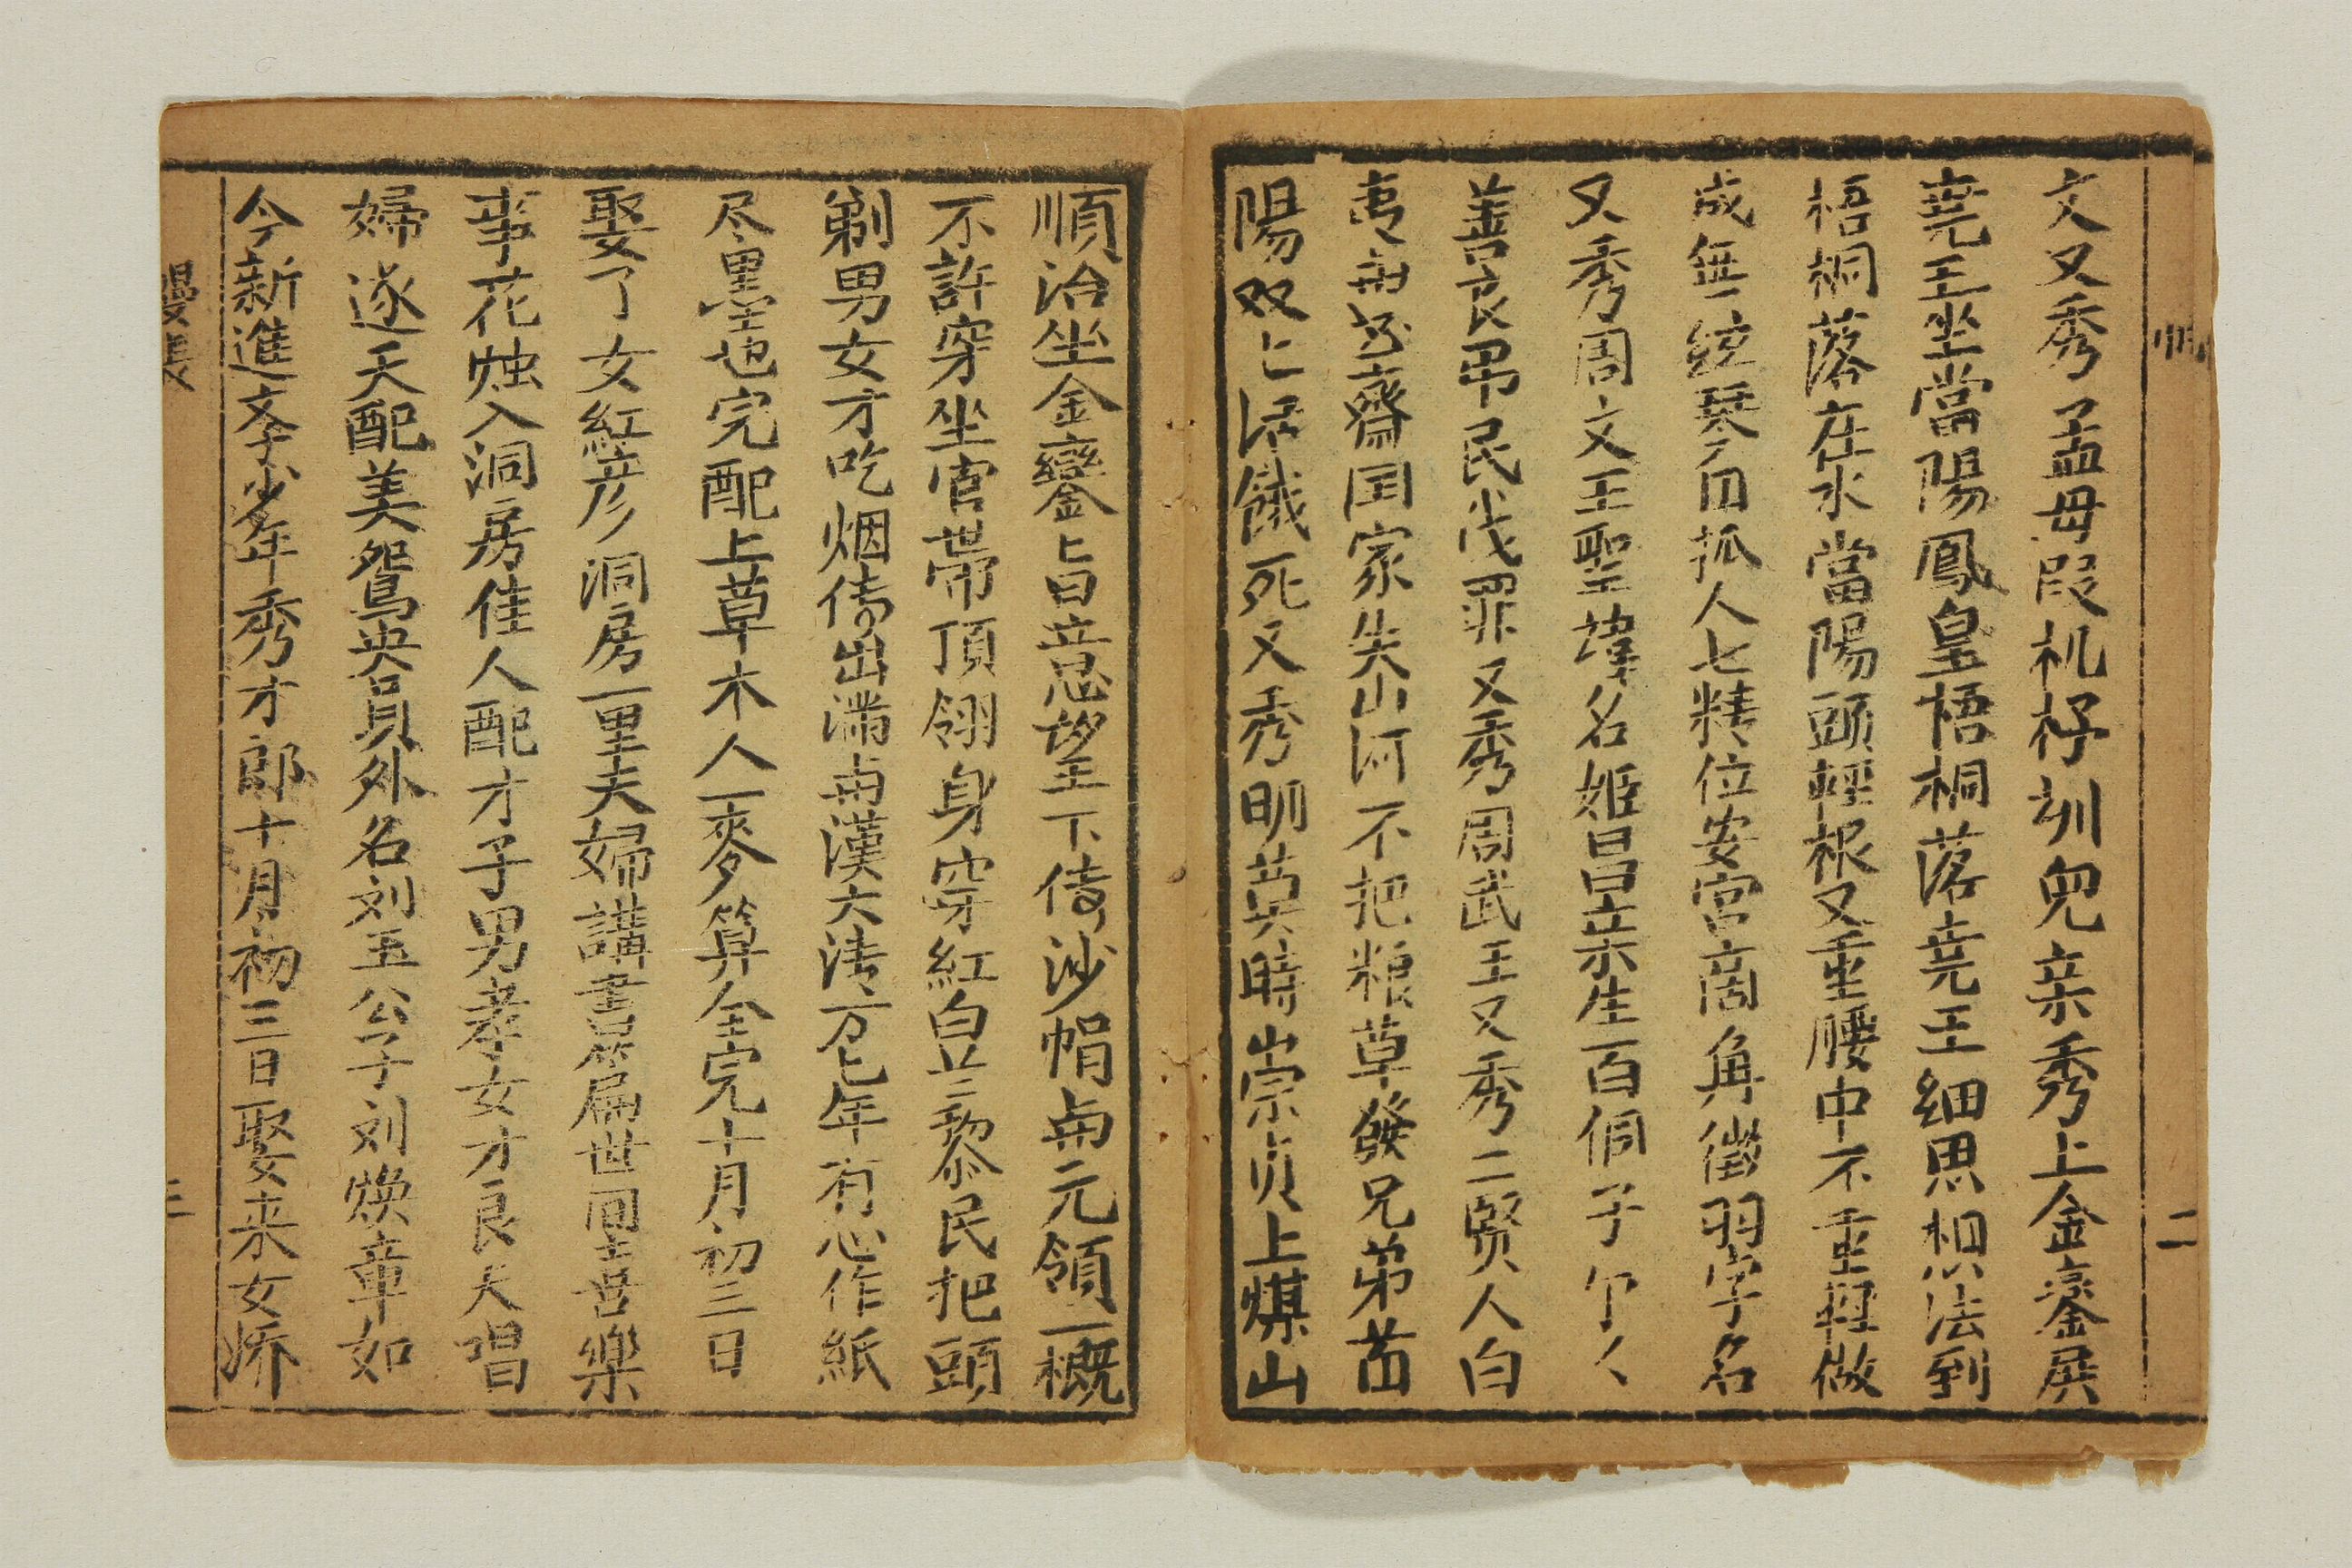 文又秀孟母叚机杼訓兒亲秀上金鑾展
尭王坐當陽鳳皇悟桐落尭王細思想法到
梧桐落在水當陽頭輕根又重腰中不重輕做
成無絃琴了囙抓人七精位安宮商角徵羽字名
又秀周文王聖諱名姬昌亲生一百個子
善良吊民伐罪又秀周武王又秀二賢人白
夷叔齊囯家失山河不把粮草發兄弟首
陽双仁活餓死又秀明英時崇貞上煤山
順治坐金鑾上旨意望下傳沙帽兩元領一概
不許穿坐官帶頂翎身穿紅白並黎民把頭
剃男女才吃烟傳出滿南漢大清万七年有心作紙
尽墨也完配上草木人一麥算全完十月初三日
娶了女紅彦洞房里夫婦講書篇世回苦樂
事花烛入洞房佳人配才子男孝女才良夫唱
婦遂天配美鴛央員外名刘五公子刘煥章如
今新進文学少年秀才郎十月初三日娶来女娇
二
三